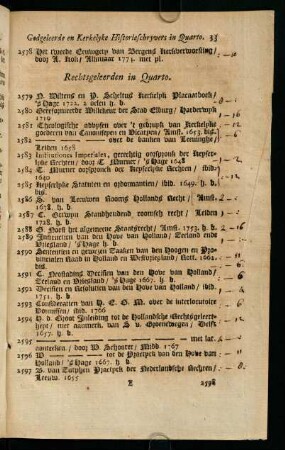 Godgeleerde en Kerkelyke Historieschryvers in Quarto. 33
2578 Het tweede Eeuwgety van Bergens Kerkhervorming,
door A. Kok, Alkmaar 1773. met pl.
Rechtsgeleerden in Quarto.
2579 N. Wiltens en P. Scheltus Kerkelyk Placaatboek,
's Hage 1722. 2 deelen h. b.
2580 Gereformeerde Willekeur der Stad Elburg, Harderwyk
1719
2581 Theologische advysen over 't gebruyk van Kerkelyke
goederen van Canonisyen en Vicaryen, Amst. 1653. bis.
2582 over de banken van Leeninghe,
Leiden 1658
2583 Institutiones Imperiales, gerechtig oorspronk der Keyser-
lyke Rechten, door T. Murner, 's Hage 1648
2584 T. Murner oorspronck der Keyserlycke Rechten, ibid.
1640
2585 Keyserlyke Statuten en ordonnantien, ibid. 1649. h. b.
bis.
2586 S. van Leeuwen Rooms Hollands Recht, Amst.
1678. h. b.
2587 C. Grotwyn Standhoudend roomsch recht, Leiden
1728. h. b.
2588 G. Noodt het algemeene Staatsrecht, Amst. 1753. h. b.
2589 Instructien van den Hove van Holland, Zeeland ende
Vriesland, 's Hage h. b.
2590 Sententien en gewezen Zaaken van den Hoogen en Pro-
vincialen Raad in Holland en Westvriesland, Rott. 1662.
bis.
2591 C. Neostadius Decisien van den Hove van Holland,
Zeeland en Vriesland, 's Hage 1667. h. b.
2592 Decisien en Resolutien van den Hove van Holland, ibid.
1751. h. b.
2593 Consideratien van H. C. G. M. over de interlocutoire
Vonnissen, ibid. 1766
2594 H. de Groot Inleiding tot de Hollandsche Rechtsgeleert-
heyt, met aanmerk. van S. v. Groenewegen, Delft
1657. h. b.
2595 met lat.
aanteeken. door W. Schorer, Midd. 1767
2596 W tot de Practyck van den Hove van
Holland, 's Hage 1667. h. b.
2597 B. van Zutphen Practyck der Nederlandsche Rechten,
Leeuw. 1655
E 2598